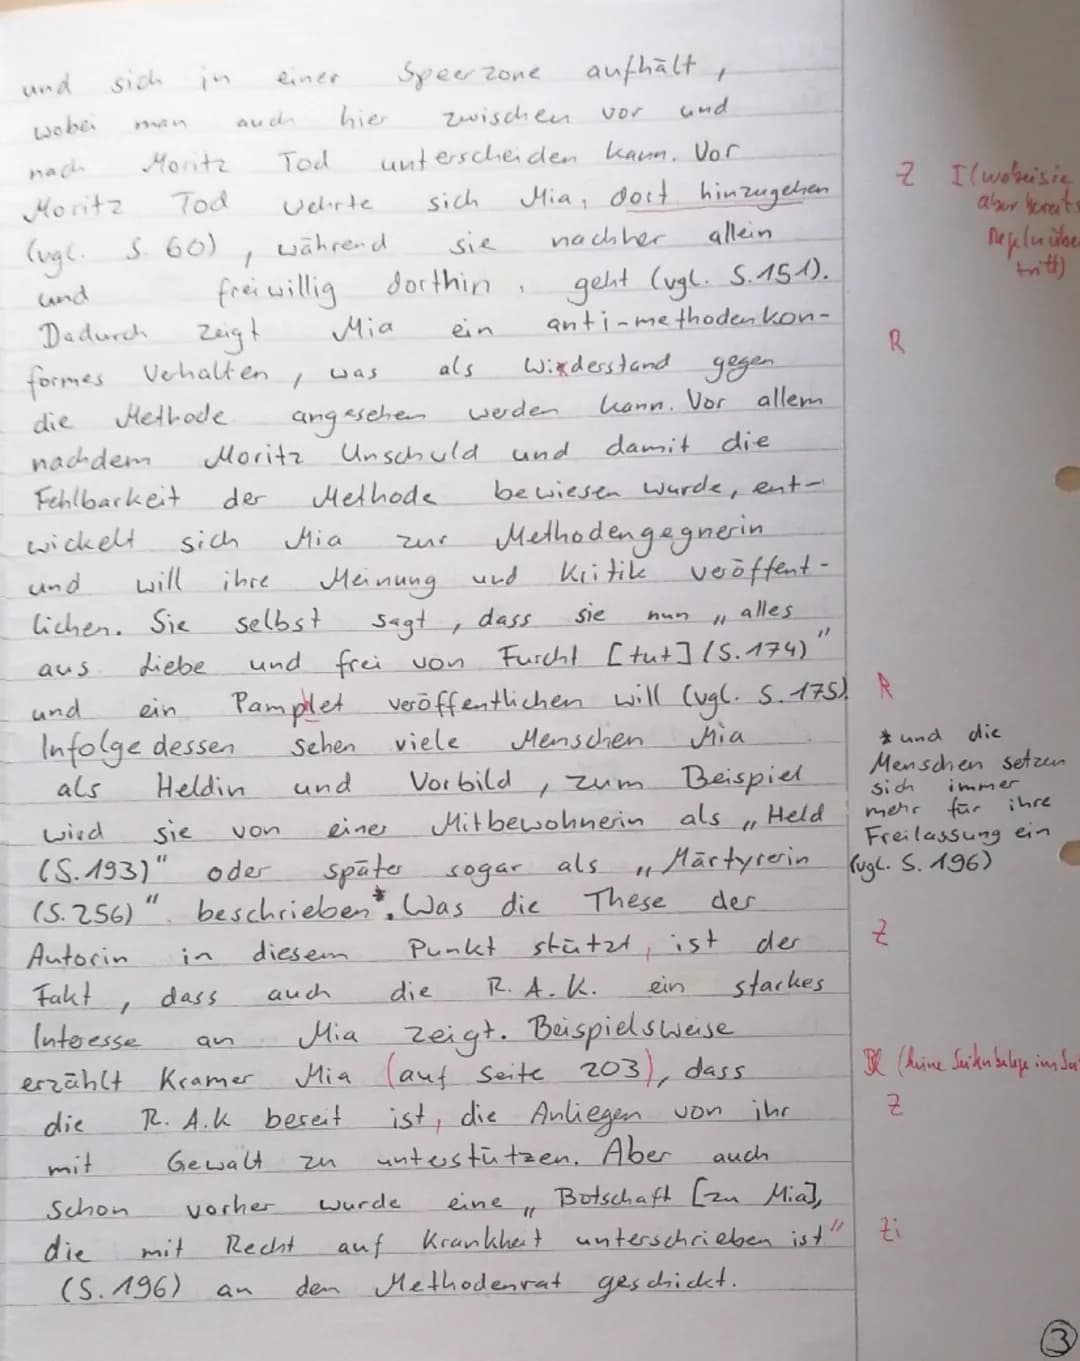 und sich in einer Speerzone aufhält,
wobei man auch hier zwischen vor und
nach Moritz Tod unterscheiden kann. Vor
Moritz Tod wehrte sich Mia, dort hinzugehen
(vgl. S. 60), während sie nachher allein
und freiwillig dorthin geht (vgl. S. 151).
Dadurch zeigt Mia ein anti-methodenkon-
formes Verhalten, was als Widerstand gegen
die Methode angesehen werden kann. Vor allem
nachdem Moritz Unschuld und damit die
Fehlbarkeit der Methode bewiesen wurde, ent-
wickelt sich Mia zur Methodengegnerin
und will ihre Meinung und Kritik veröffent-
lichen. Sie selbst sagt, dass sie nun „alles
aus Liebe und frei von Furcht [tut] (S. 174)"
und ein Pamplet veröffentlichen will (vgl. S. 175).
Infolge dessen sehen viele Menschen Mia
als Heldin und Vorbild, zum Beispiel
wird sie von einer Mitbewohnerin als „Held
(S. 193)" oder später sogar als „Märtyrerin
(S. 256)" beschrieben*. Was die These der
Autorin in diesem Punkt stützt, ist der
Fakt, dass auch die R. A. K. ein starkes
Interesse an Mia zeigt. Beispielsweise
erzählt Kramer Mia (auf Seite 203), dass
die R. A. K bereit ist, die Anliegen von ihr
mit Gewalt zu unterstützen. Aber auch
schon vorher wurde eine „Botschaft [zu Mia],
die mit Recht auf Krankheit unterschrieben ist"
(S. 196) an den Methodenrat geschickt.
Z I (wobei sie
aber bereits
Regeln über
tritt)
R
R
* und die
Menschen setzen
sich immer
mehr für ihre
Freilassung ein
(vgl. S. 196)
Z
R (keine Seitenbelege im
Z
Zi
3